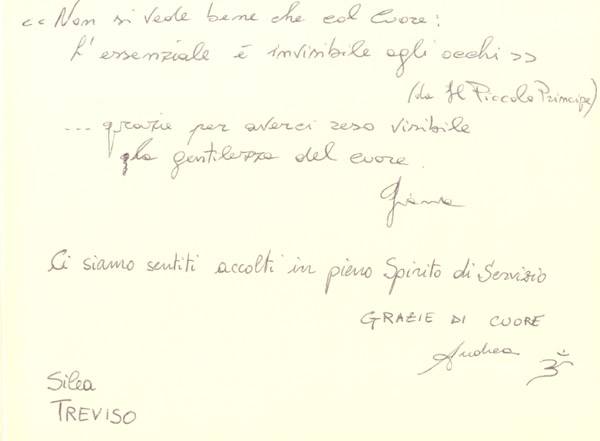 << Non si vede bene che col Cuore:
L'essenziale è invisibile agli occhi >>
(da Il Piccolo Principe)
... grazie per averci reso visibile
la gentilezza del cuore.
Ci siamo sentiti accolti in pieno Spirito di Servizio
GRAZIE DI CUORE
Andrea ॐ
Silea
TREVISO